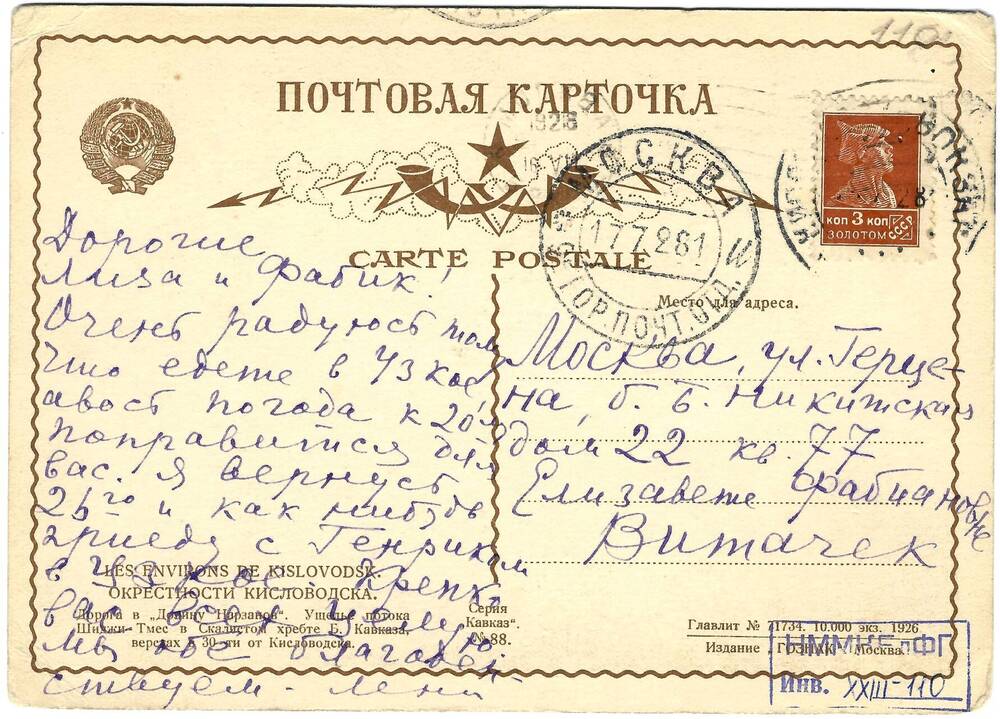 ПОЧТОВАЯ КАРТОЧКА
CARTE POSTALE
МОСКВА
17.7.281
ГОР. ПОЧТ.
ВОКЗАЛ
КОП 3 КОП
ЗОЛОТОМ
СССР
Место для адреса.
Дорогие
Лиза и Фабик!
Очень радуюсь том
что едете в Узкое
авось погода к 20
поправится для
вас. Я вернусь
25го и как нибудь
приеду с Генрихом
в Узкое. Крепко
вас всех целую.
Мы все благоден-
ствуем - Лени
Москва, ул. Герце-
на, б. Б. Никитская
дом 22 кв. 77
Елизавете Фабиановне
Витачек
LES ENVIRONS DE KISLOVODSK.
ОКРЕСТНОСТИ КИСЛОВОДСКА.
Дорога в „Долину Нарзанов". Ущелье потока
Шиджи-Тмес в Скалистом хребте Б. Кавказа,
верстах в 30-ти от Кисловодска.
Серия
Кавказ".
№ 88.
Главлит № 71734. 10.000 экз. 1926
Издание „ГОЗНАК" Москва.
Инв. XXIII-110